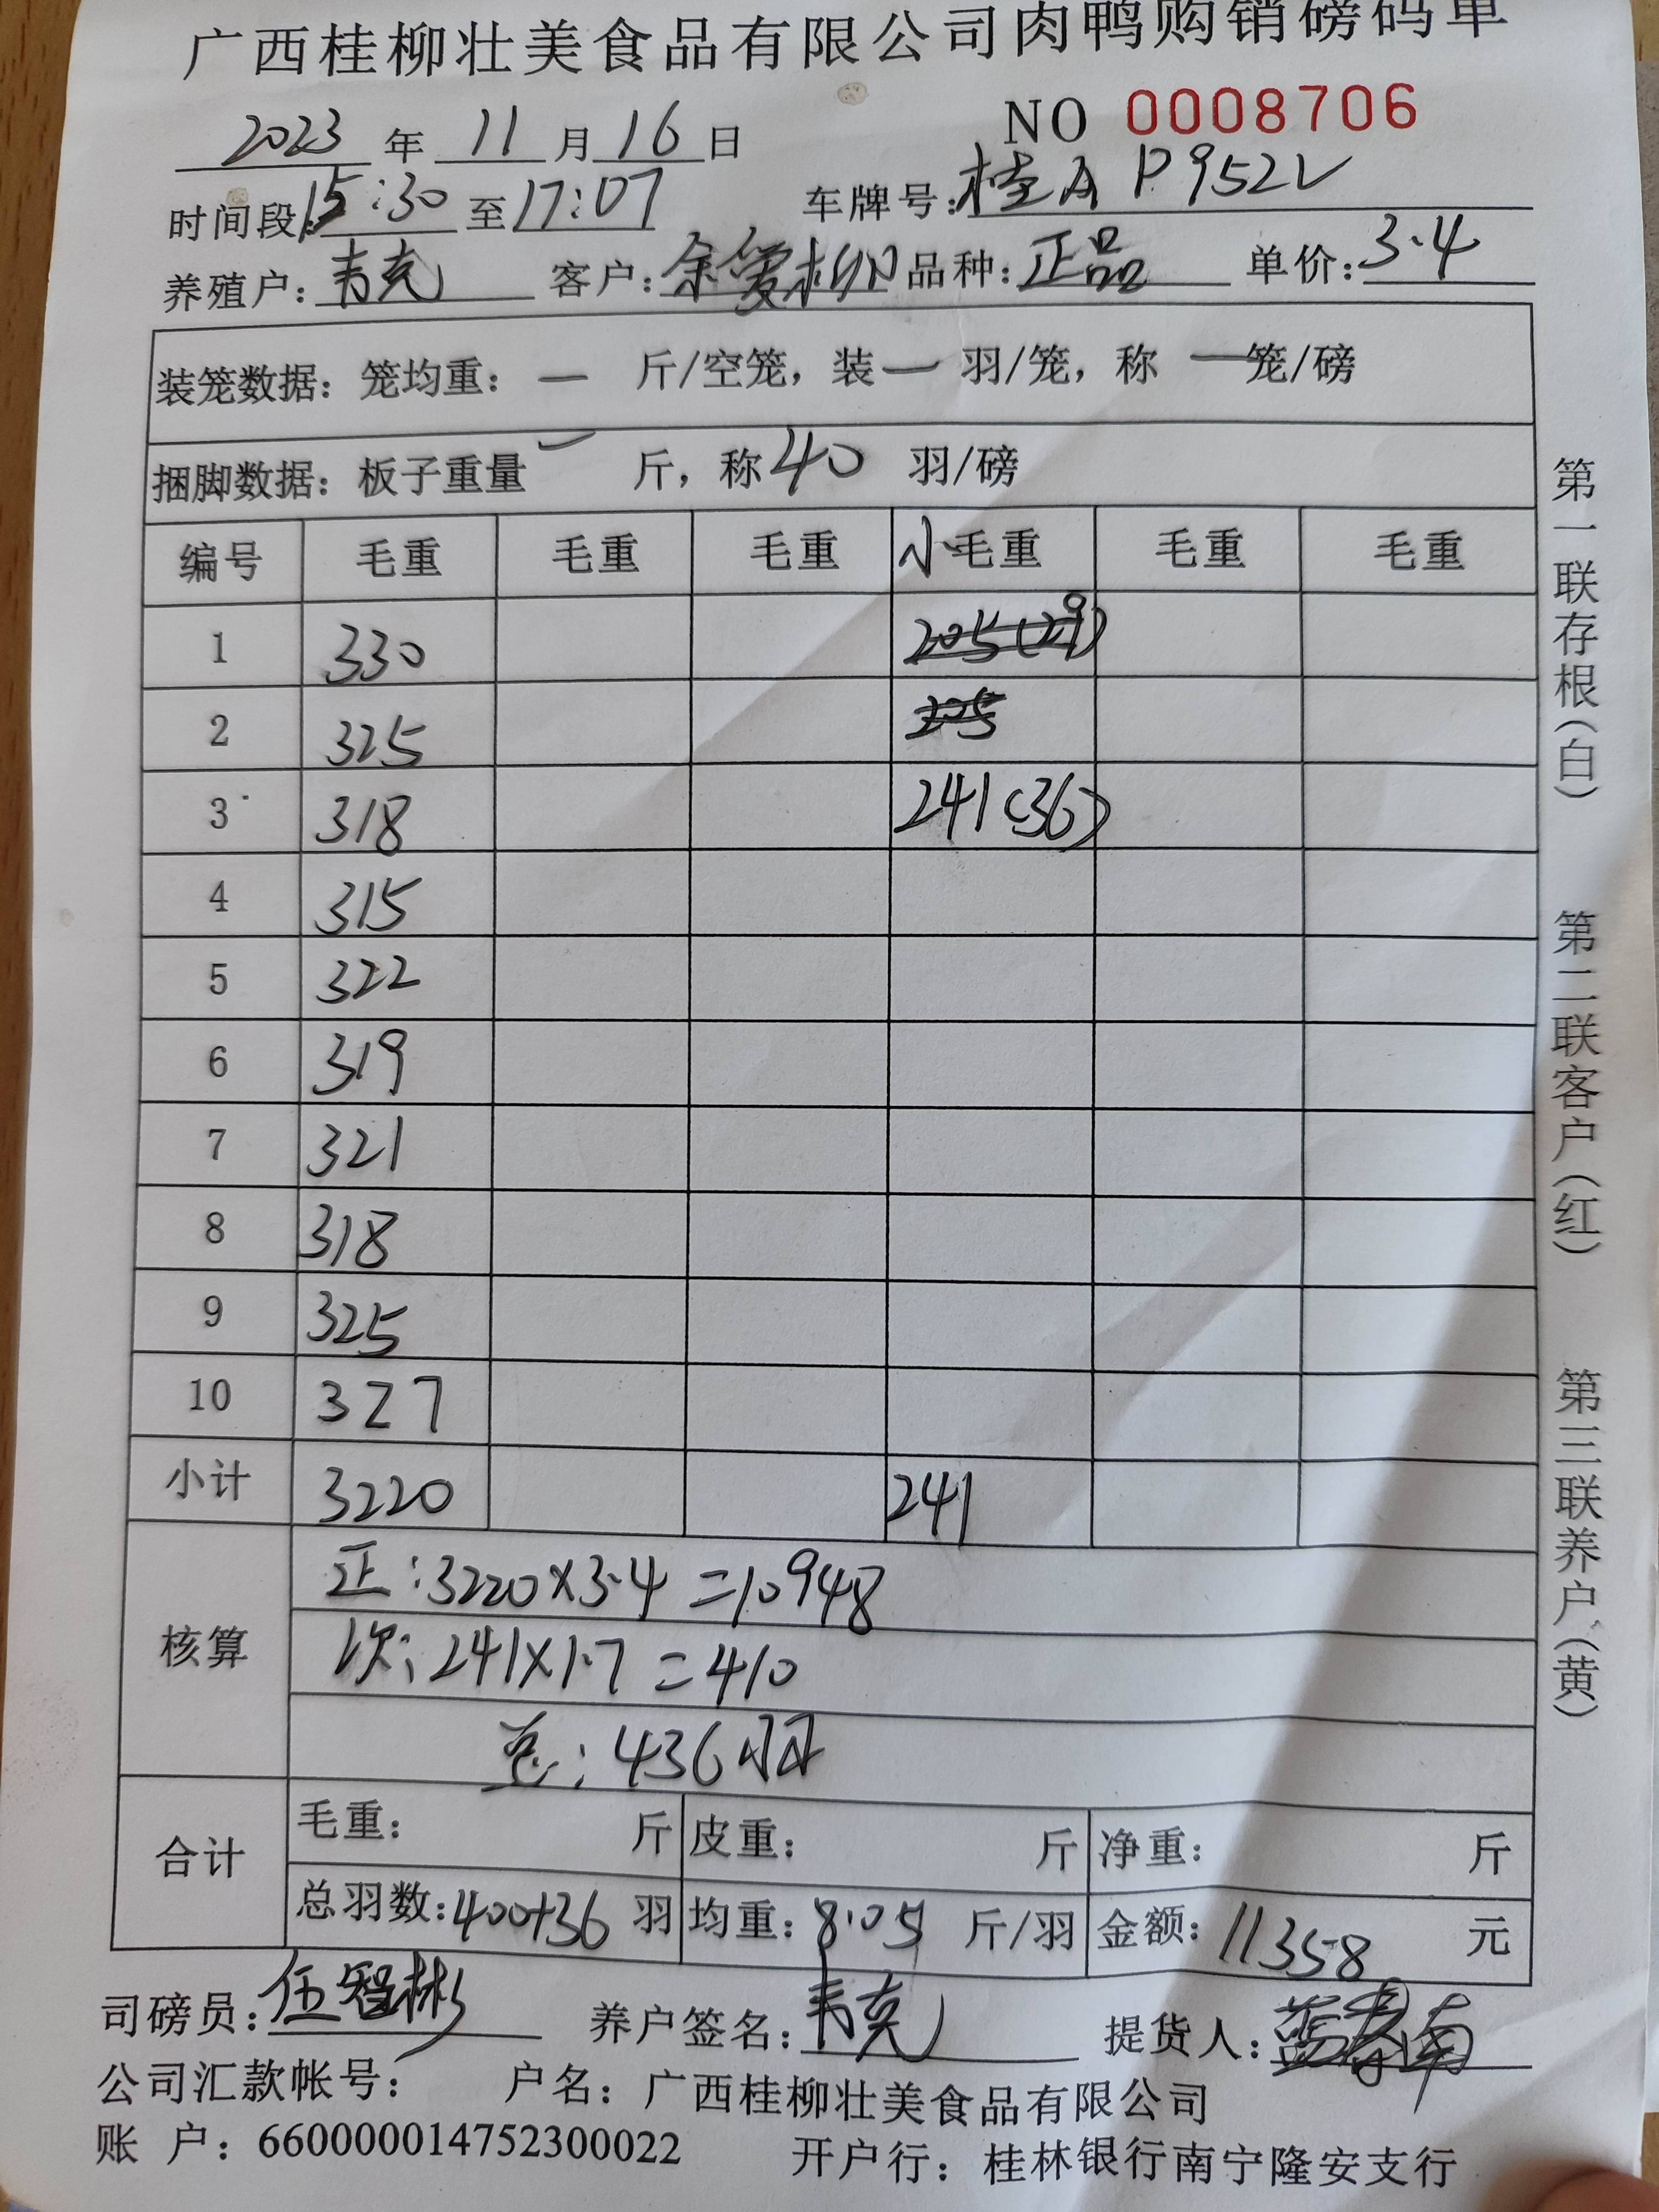 广西桂柳壮美食品有限公司肉鸭购销磅码单
NO 0008706
2023年11月16日
时间段:15:30至17:07 车牌号:桂A P952V
养殖户:韦克 客户:余爱 品种:正品 单价:3.4
装笼数据:笼均重:一 斤/空笼,装一 羽/笼,称 一笼/磅
捆脚数据:板子重量 一 斤,称40 羽/磅
编号 毛重 毛重 毛重 小毛重 毛重 毛重
1 330 205(29)
2 325 205
3 318 241(36)
4 315
5 322
6 319
7 321
8 318
9 325
10 327
小计 3220 241
核算 正:3220×3.4=10948
次:241×1.7=410
总:436羽
合计 毛重: 斤 皮重: 斤 净重: 斤
总羽数:400+36 羽 均重:8.05 斤/羽 金额:11358 元
司磅员:伍智彬 养户签名:韦克 提货人:蓝春南
公司汇款帐号: 户名:广西桂柳壮美食品有限公司
账 户:660000014752300022 开户行:桂林银行南宁隆安支行
第一联存根(白) 第二联客户(红) 第三联养户(黄)